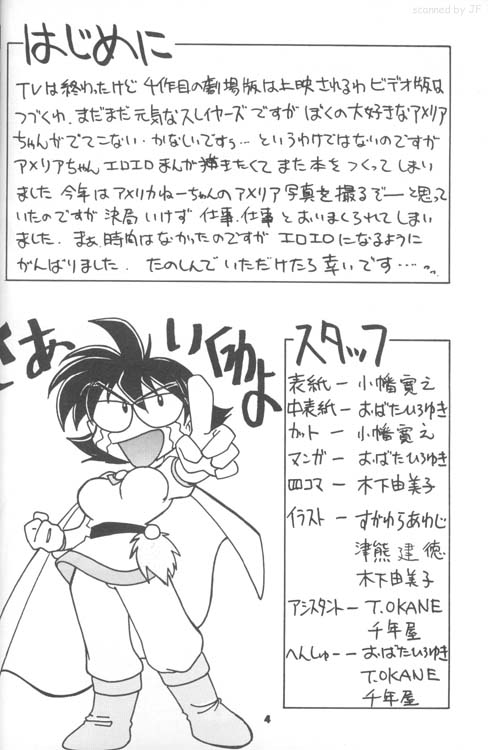 scanned by JF
はじめに
TVは終わったけど 4作目の劇場版は上映されるわ ビデオ版は
つづくわ. まだまだ 元気なスレイヤーズ ですが ぼくの大好きなアメリア
ちゃんがでてこない・かなしいですぅ… というわけではないのですが
アメリアちゃん エロエロ まんが 描きたくて また 本を つくって しまい
ました 今年は アメリカねーちゃんの アメリア 写真を 撮るぞー と思って
いたのですが 決局 いけず 仕事.仕事 と おいまくられて しまい
ました. まぁ、時間は なかったのですが エロエロになるように
がんばりました. たのしんで いただけたら 幸いです….
さあ いくわよ
スタッフ
表紙ー 小幡寛之
中表紙ー おばたひろゆき
カットー 小幡寛之
マンガー おばたひろゆき
四コマー 木下由美子
イラストー すがわらあわじ
津熊建徳
木下由美子
アシスタントー T.OKANE
千年屋
へんしゅーー おばたひろゆき
T.OKANE
千年屋
4